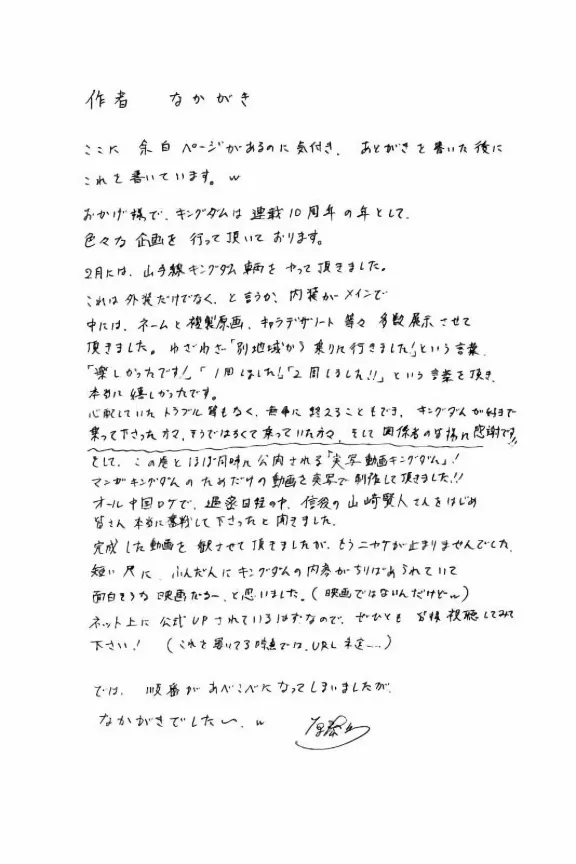 作者　なかがき
ここに 余白ページがあるのに気付き、 あとがきを書いた後に
これを書いています。w
おかげ様で、キングダムは 連載10周年の年として、
色々な 企画を 行って頂いております。
2月には、山手線キングダム車輌を やって頂きました。
これは外装だけでなく、と言うか、内装がメインで
中には、ネームと複製原画、キャラデザノート等々 多数展示させて
頂きました。わざわざ「別地域から乗りに行きました!」という言葉、
「楽しかったです!」「1周しました!」「2周しました!!」という言葉を頂き、
本当に嬉しかったです。
心配していたトラブル等もなく、無事に終えることもでき、キングダムが好きで
乗って下さった方々、そうではなくて乗っていた方々、そして関係者の皆様に感謝です!!
そして、この巻とほぼ同時に公開される「実写動画キングダム」!
マンガキングダムのためだけの動画を実写で制作して頂きました!!
オール中国ロケで、過密日程の中、信役の山﨑賢人さんをはじめ
皆さん本当に奮戦して下さったと聞きました。
完成した動画を観させて頂きましたが、もうニヤケが止まりませんでした。
短い尺に、ふんだんにキングダムの内容がちりばめられていて
面白そうな映画だなー、と思いました。(映画ではないんだけどw)
ネット上に公式UPされているはずなので、ぜひとも皆様視聴してみて
下さい! (これを書いてる時点では、URL未定…)
では、順番があべこべになってしまいましたが、
なかがきでした〜。w 原泰久